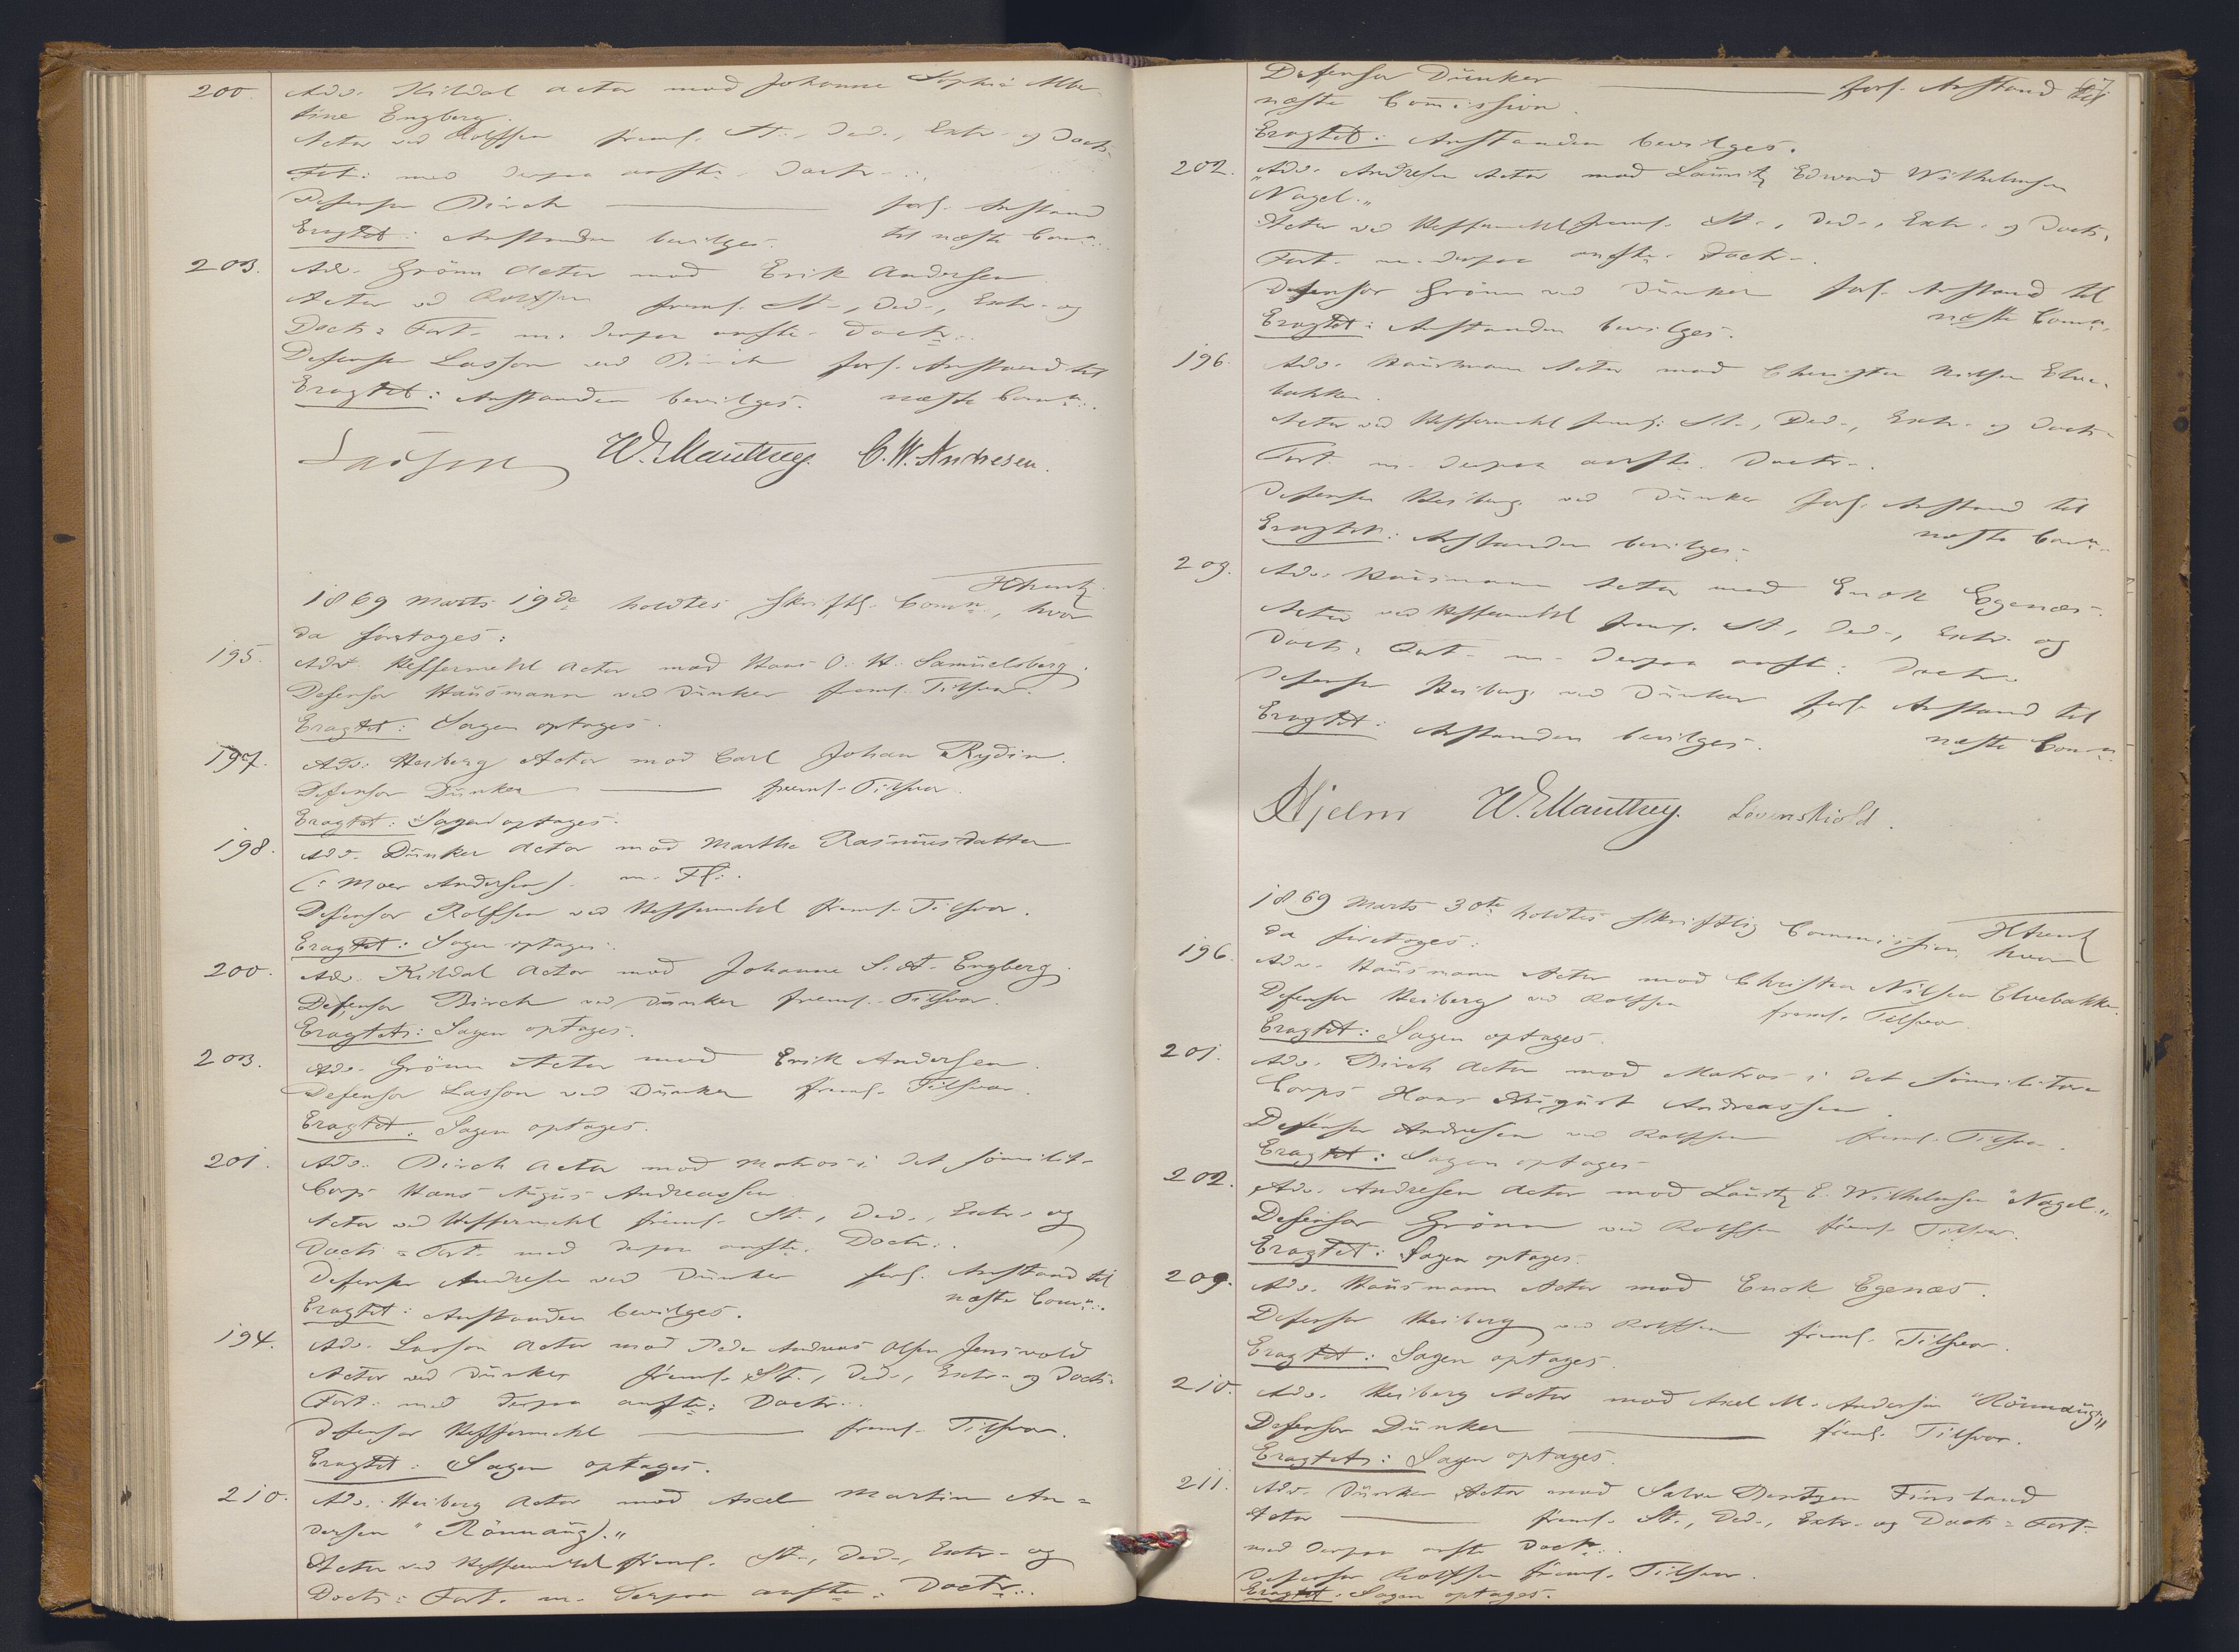 200. Adv. Kildal Actor mod Johanne Sophie Alber-
tine Engberg.
Actor ved Rolfsen freml. St., Ded., Extr. og Docts-
Fort. med derpaa anfte. Doctr.
Defensor Birch forl. Anstand
Eragtet: Anstanden bevilges. til næste Comn.
203. Adv. Grönn Actor mod Erik Andersen
Actor ved Rolfsen freml. St., Ded., Extr. og
Docts = Fort. m. derpaa anfte. Doctr.
Defensor Lasson ved Birch forl. Anstand til
Eragtet: Anstanden bevilges. næste Comn.
Lasson W. Manthey. C. W. Andresen.
1869 Marts 19de holdtes skriftl. Comn., hvor
da foretoges:
195. Adv. Heffermehl Actor mod Hans O. H. Samuelsberg.
Defensor Hausmann ved Dunker freml. Tilsvar.
Eragtet: Sagen optages.
197. Adv. Heiberg Actor mod Carl Johan Rydin.
Defensor Dunker freml. Tilsvar.
Eragtet: Sagen optages.
198. Adv. Dunker Actor mod Marthe Rasmusdatter
(: Moer Andersen) m. Fl.
Defensor Rolfsen ved Heffermehl freml. Tilsvar.
Eragtet: Sagen optages.
200. Adv. Kildal Actor mod Johanne S. A. Engberg.
Defensor Birch ved Dunker freml. Tilsvar.
Eragtet: Sagen optages.
203. Adv. Grönn Actor mod Erik Andersen.
Defensor Lasson ved Dunker freml. Tilsvar.
Eragtet. Sagen optages.
201. Adv. Birch Actor mod Matros i det sömilit-
Corps Hans Augus- Andreassen
Actor ved Heffermehl freml. St., Ded., Extr. og
Docts = Fort. med derpaa anfte. Doctr.
Defensor Andresen ved Dunker forl. Anstand til
Eragtet: Anstanden bevilges. næste Comn.
194. Adv. Lasson Actor mod Peder Andreas Olsen Jensvold
Actor ved Dunker freml. St., Ded., Extr. og Docts-
Fort. med derpaa anfte. Doctr.
Defensor Heffermehl freml. Tilsvar.
Eragtet: Sagen optages.
210. Adv. Heiberg Actor mod Axel Martin An=
dersen "Rönnaug."
Actor ved Heffermehl freml. St., Ded., Extr. og
Docts = Fort. m. derpaa anfte. Doctr.
67
Defensor Dunker forl. Anstand til
næste Commission.
Eragtet: Anstanden bevilges.
202. Adv. Andresen Actor mod Lauritz Edvard Wilhelmsen
"Nagel."
Actor ved Heffermehl freml. St., Ded., Extr. og Docts-
Fort. m. derpaa anfte. Doctr.
Defensor Grönn ved Dunker forl. Anstand til
Eragtet: Anstanden bevilges. næste Comn.
196. Adv. Hausmann Actor mod Christen Nielsen Elve-
bakken.
Actor ved Heffermehl freml. St., Ded., Extr. og Docts-
Fort. m. derpaa anfte. Doctr.
Defensor Heiberg ved Dunker forl. Anstand til
Eragtet: Anstanden bevilges. næste Comn.
209. Adv. Hausmann Actor mod Enok Egenæs.
Actor ved Heffermehl freml. St., Ded., Extr. og
Docts = Fort. m. derpaa anfte. Doctr.
Defensor Heiberg ved Dunker forl. Anstand til
Eragtet: Anstanden bevilges. næste Comn.
Hjelm W. Manthey. Lövenskiold.
1869 Marts 30te holdtes skriftlig Commission, hvor
da foretoges:
196. Adv. Hausmann Actor mod Christen Nilsen Elvebakken.
Defensor Heiberg ved Rolfsen freml. Tilsvar.
Eragtet: Sagen optages.
201. Adv. Birch Actor mod Matros i det sömilitære
Corps Hans August Andreassen.
Defensor Andresen ved Rolfsen freml. Tilsvar.
Eragtet: Sagen optages
202. Adv. Andresen Actor mod Lauritz E. Wilhelmsen "Nagel."
Defensor Grönn ved Rolfsen freml. Tilsvar.
Eragtet: Sagen optages.
209. Adv. Hausmann Actor mod Enok Egenæs.
Defensor Heiberg ved Rolfsen freml. Tilsvar.
Eragtet: Sagen optages.
210. Adv. Heiberg Actor mod Axel M. Andersen "Rönnaug"
Defensor Dunker freml. Tilsvar.
Eragtet: Sagen optages.
211. Adv. Dunker Actor mod Salve Bentzen Finsland
Actor freml. St., Ded., Extr. og Docts = Fort-
med derpaa anfte Doctr.
Defensor Rolfsen freml. Tilsvar.
Eragtet: Sagen optages.